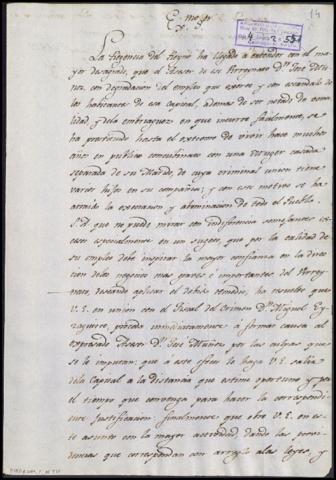 Exmo Sor
La Regencia del Reyno ha llegado a entender con el ma-
yor desagrado, que el Asesor de ese Virreynato Dn. José Muñoz,
con degradacion del empleo que exerce y con escandalo de
los habitantes de esa capital, ademas de ser notado de
y de la embriaguez en que incurre facilmente, se
ha prostituido hasta el extremo de vivir hace muchos
años en publico concubinato con una muger casada
separada de su Marido, de cuya criminal union tiene
varios hijos en su compañia; y con este motivo se ha
atraido la execracion y abominacion de todo el Pueblo.
S.A. que no puede mirar con indiferencia semejantes
especialmente en un sugeto, que por la calidad de
su empleo debe inspirar la mayor confianza en la direc-
cion de los negocios mas graves é importantes del Virrey-
nato, deseando aplicar el debido remedio, ha resuelto que
V.E. en union con el Fiscal del Crimen Dn. Miguel Ey-
zaguirre, proceda inmediatamente á formar causa al
expresado Asesor Dn. José Muñoz por las culpas que
se le imputan: que á este efecto le haga V.E. salir
de la Capital a la distancia que estime oportuno y por
el tiempo que convenga para hacer la correspondien-
te Justificacion: finalmente que obre V.E. en es-
te asunto con la mayor actividad dando las provi-
dencias que correspondan con arreglo a las leyes, y